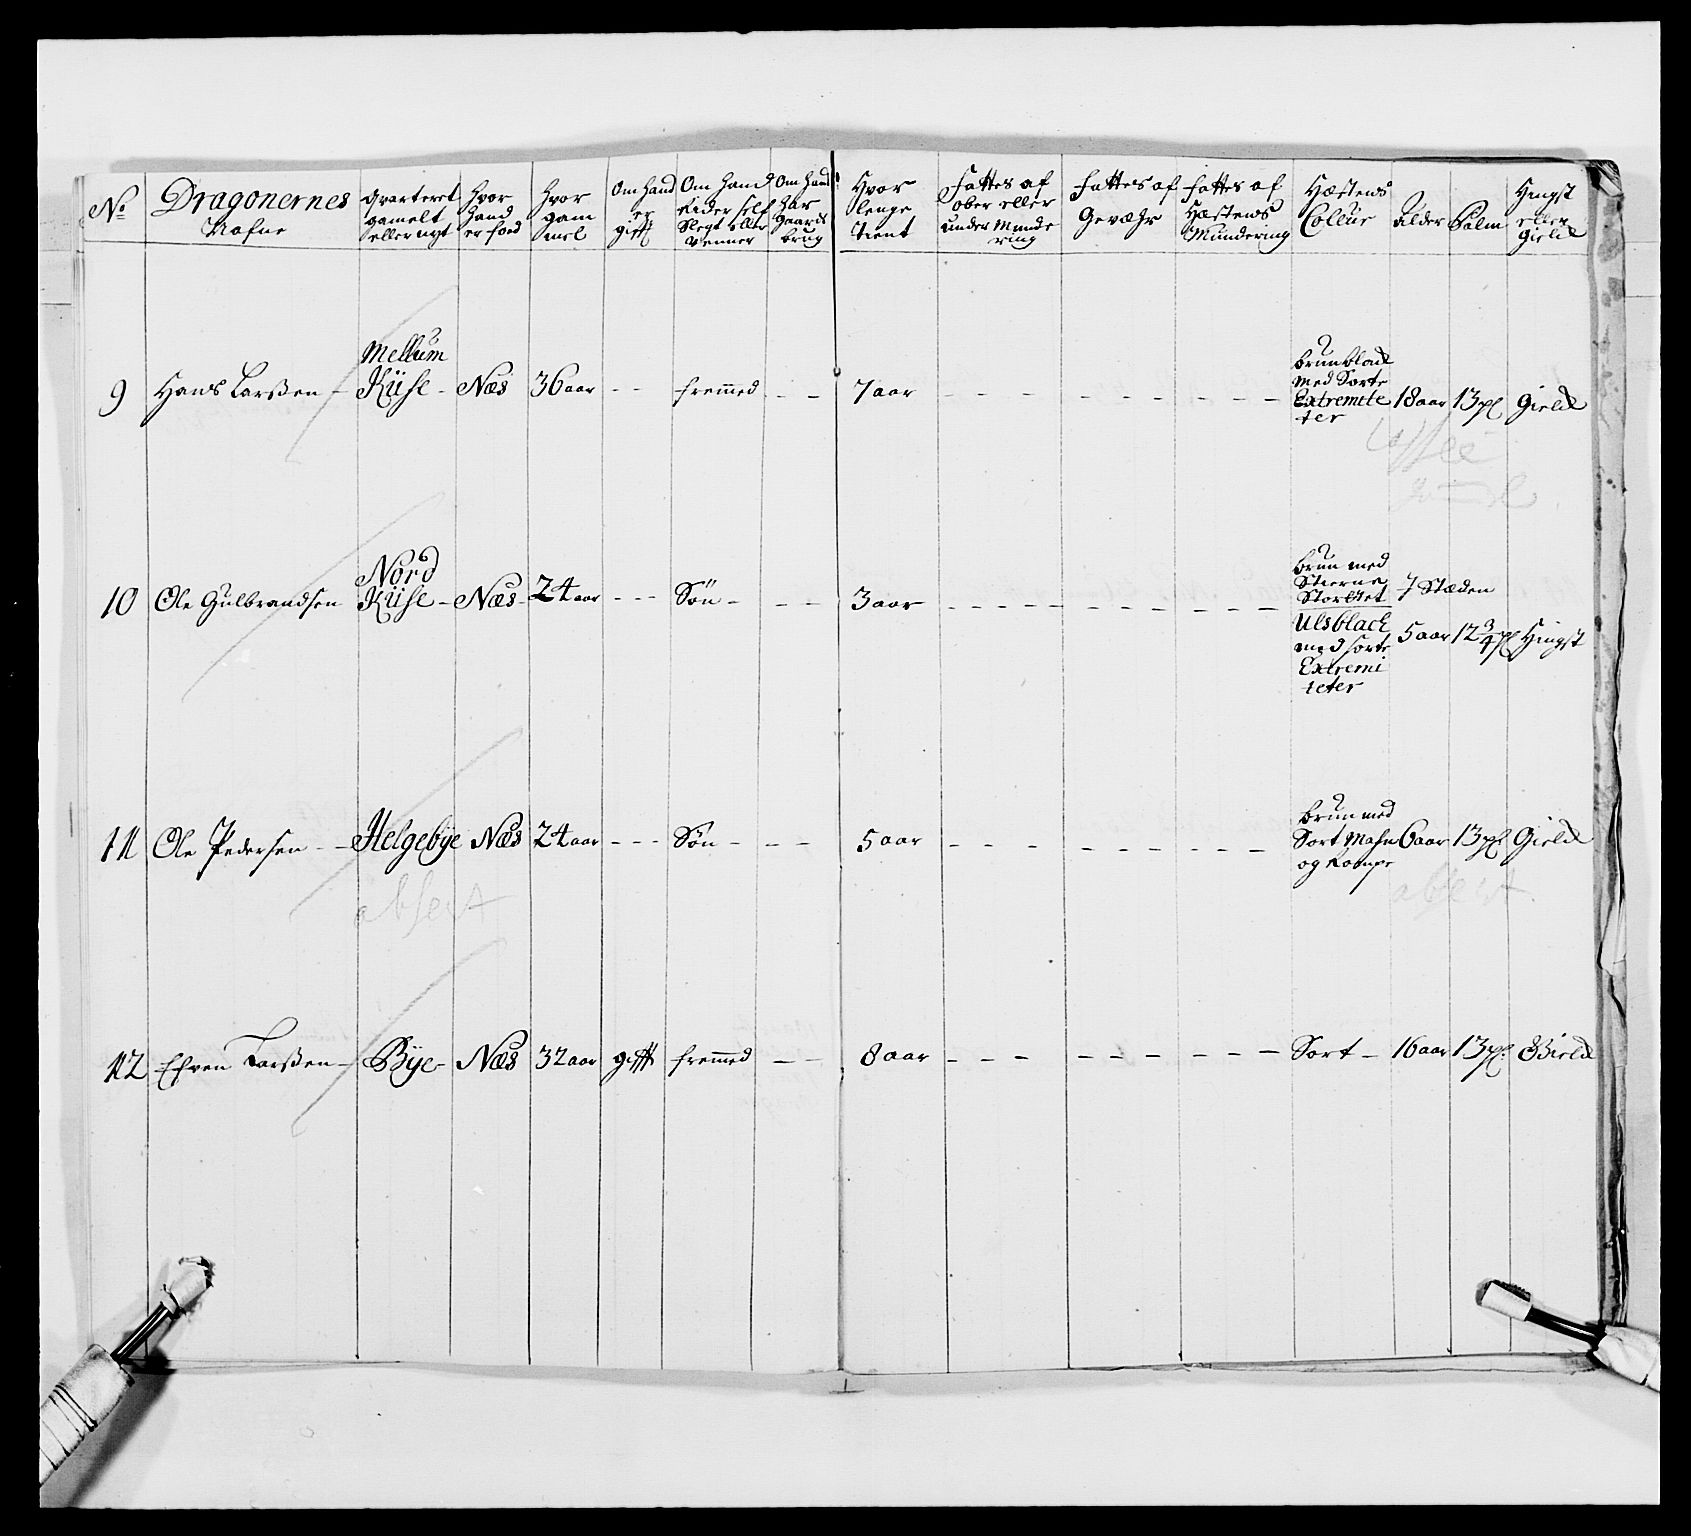 No Dragonernes Nafne | Qvarteret gamelt eller nyt | Hvor hand er foed | Hvor gam mel | Om hand er gifft | Om hand Rider self Slegt eller Venner | Om hand har Gaards brug | Hvor lenge tient | Fattes af ober eller under Munde ring | Fattes af Gevæhr | Fattes af Hæstens Mundering | Hæstens Colleur | Alder | Palm | Hingst eller Gield
9 Hans Larßen - Mellum Kiise - Næs 36 aar - - fremmed - - 7 aar - - - - - - - - - brunblack med Sorte Extremite ter 18 aar 13 pl Gield
10 Ole Gulbrandsen Nord Kiise - Næs - 24 aar - - - Søn - - - 3 aar - - - - - - - - - brun med Stierne Stortet 7 Stæden
Ulsblack med sorte Extremi teter 5 aar 12 3/4 pl Hingst
11 Ole Pedersen - - Helgebÿe Næs 24 aar - - - Søn - - - 5 aar - - - - - - - - - brun med Sort Mahn og Rompe 6 aar 13 pl Gield
absent absent
12 Efven Larßen - Bÿe - Næs 32 aar gifft fremmed - - 8 aar - - - - - - - - Sort - 16 aar 13 pl. Gield